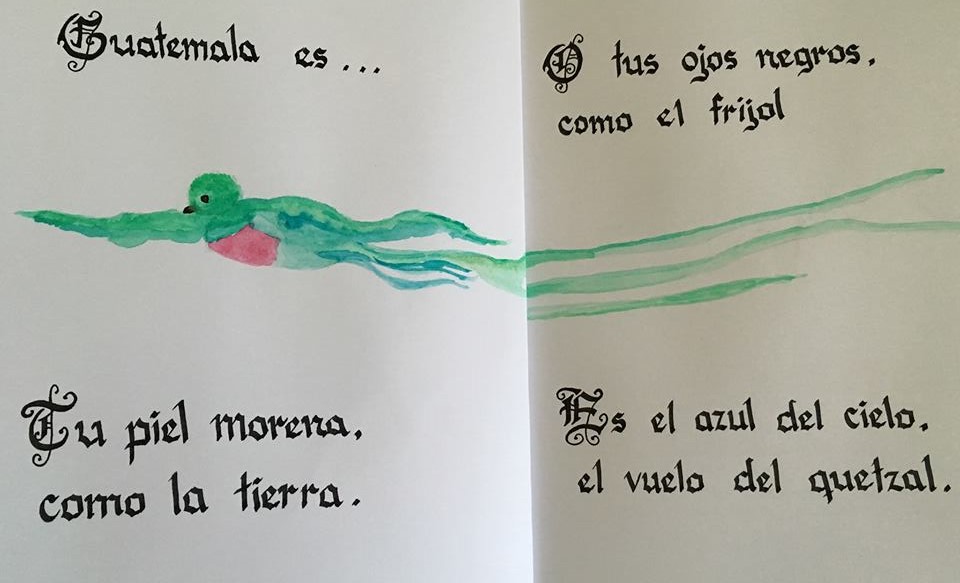 Guatemala es...
Tu piel morena,
como la tierra.
O tus ojos negros,
como el frijol
Es el azul del cielo,
el vuelo del quetzal.